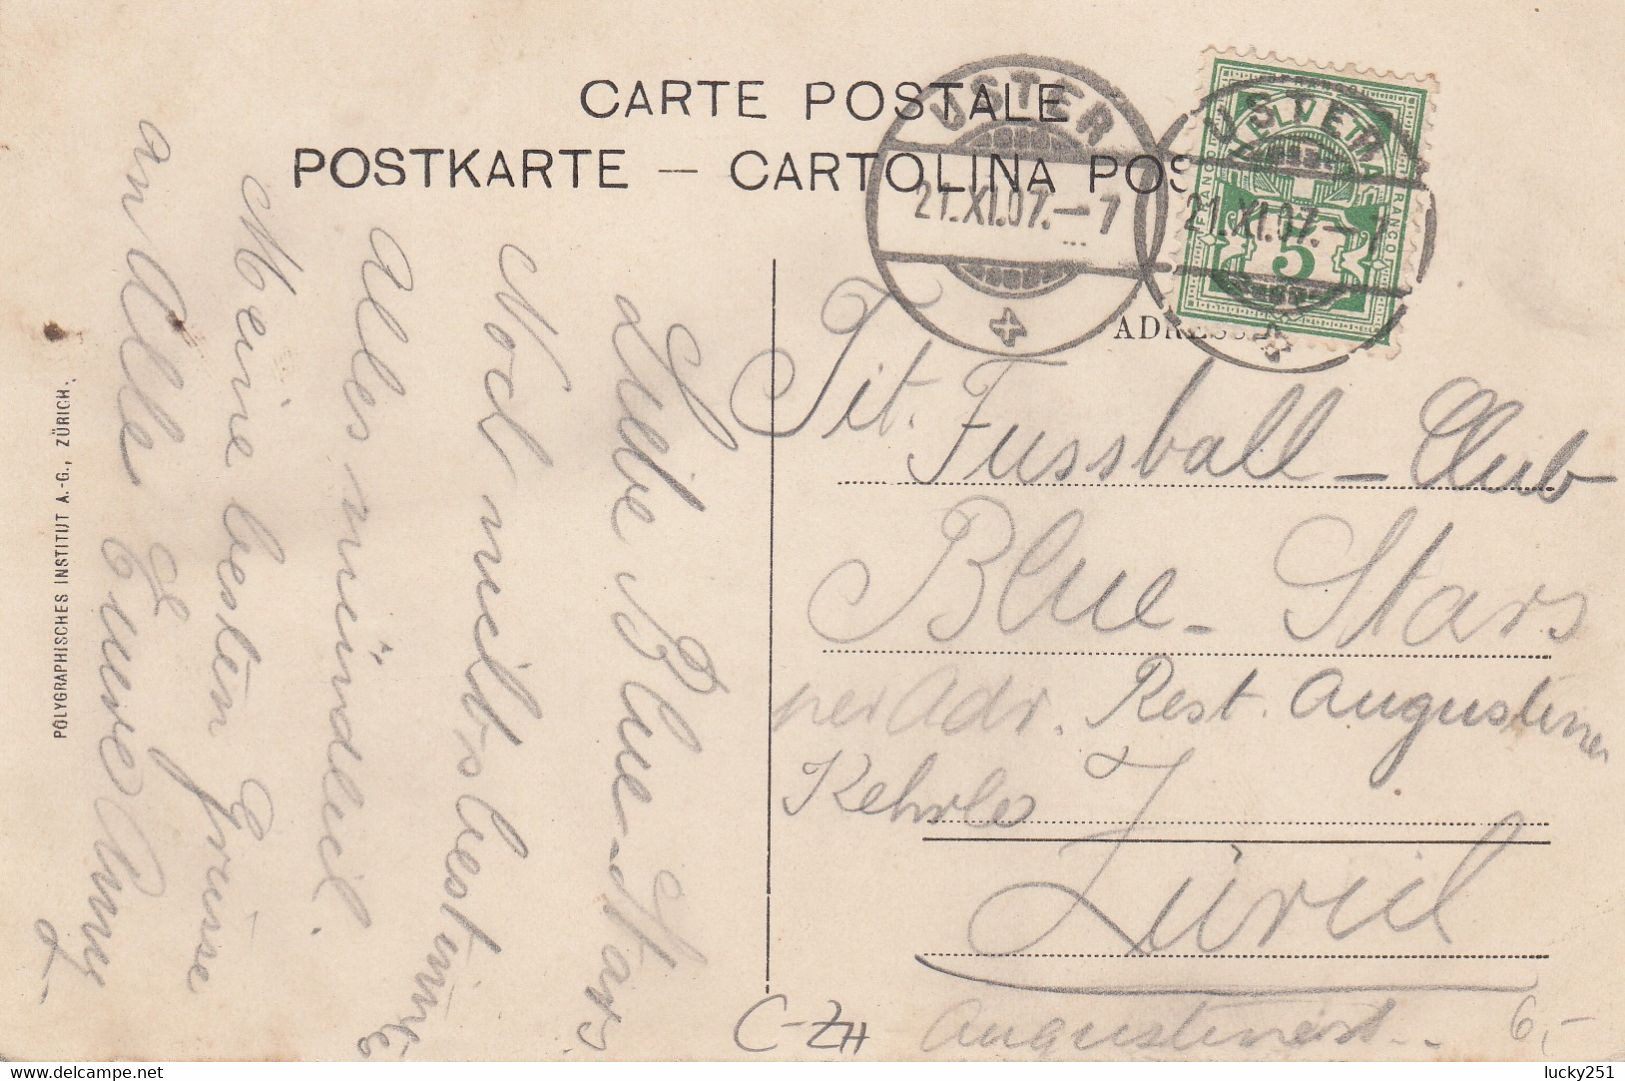 CARTE POSTALE
POSTKARTE — CARTOLINA POS
USTER
21.XI.07.–7
USTER
21.XI.07.–7
HELVETIA
FRANCO
FRANCO
5
ADRESSE
Tit. Fussball-Club
Blue-Stars
per Adr. Rest. Augustiner
Kehrle
Zürich
Liebe Blue-Stars
Noch nichts bestimmtes
alles mündlich.
Meine besten Grüsse
an Alle
POLYGRAPHISCHES INSTITUT A.-G., ZÜRICH.
C-ZH
6,-
www.delcampe.net
lucky251